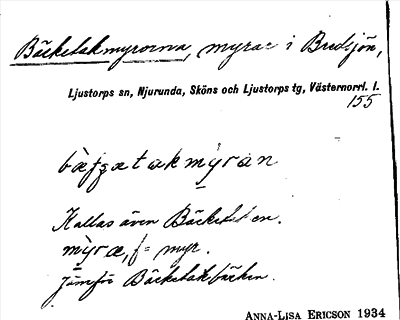 Bäcketakmyrorna, myrar i Bredsjön,
Ljustorps sn, Njurunda, Sköns och Ljustorps tg, Västernorrl. l.
155
bäʃɟatakmỳran
Kallas även
mỳra, f = myr.
Jämför Bäcketakbäcken.
ANNA-LISA ERICSON 1934